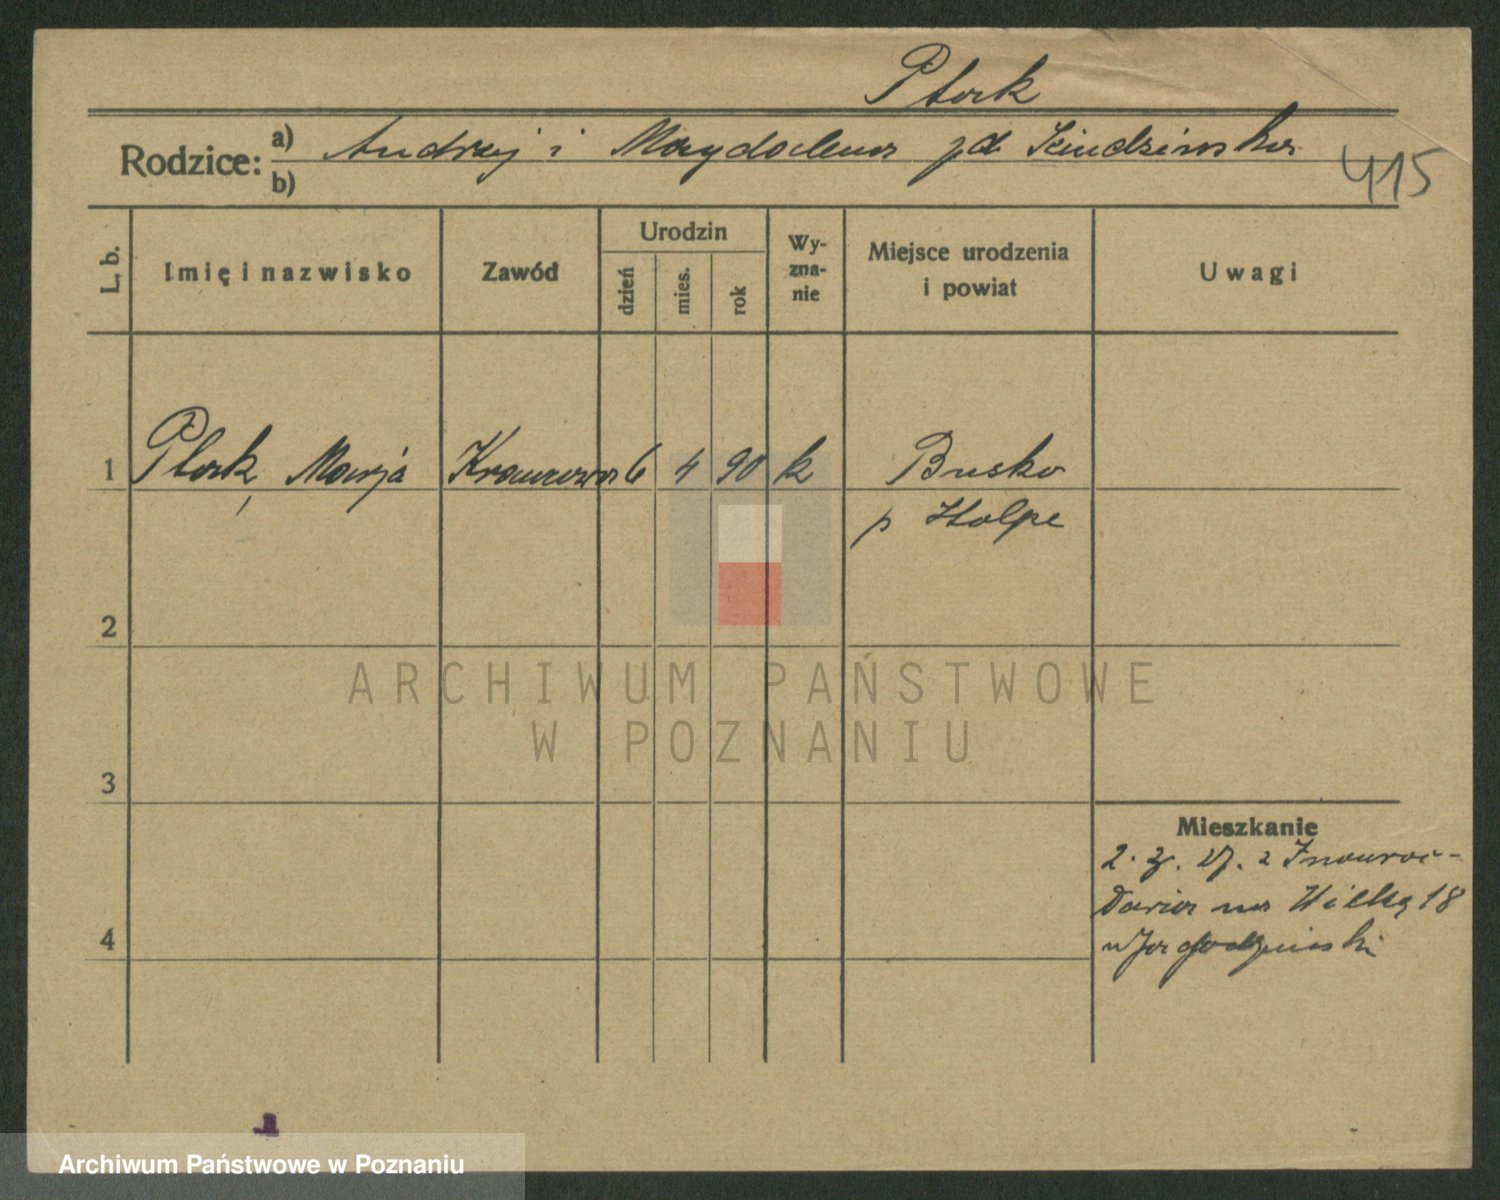 Ptock
Rodzice: a) Andrzej i Magdalena
b)
415
L. b.
Imię i nazwisko
Zawód
Urodzin
dzień
mies.
rok
Wy-
zna-
nie
Miejsce urodzenia
i powiat
Uwagi
1 Marja Krawcowa 6 4 90 k Busko
p Stolpe
2
3
4
Mieszkanie
Inowroc-
ławia na Wielką 18
ARCHIWUM PAŃSTWOWE
W POZNANIU
Archiwum Państwowe w Poznaniu